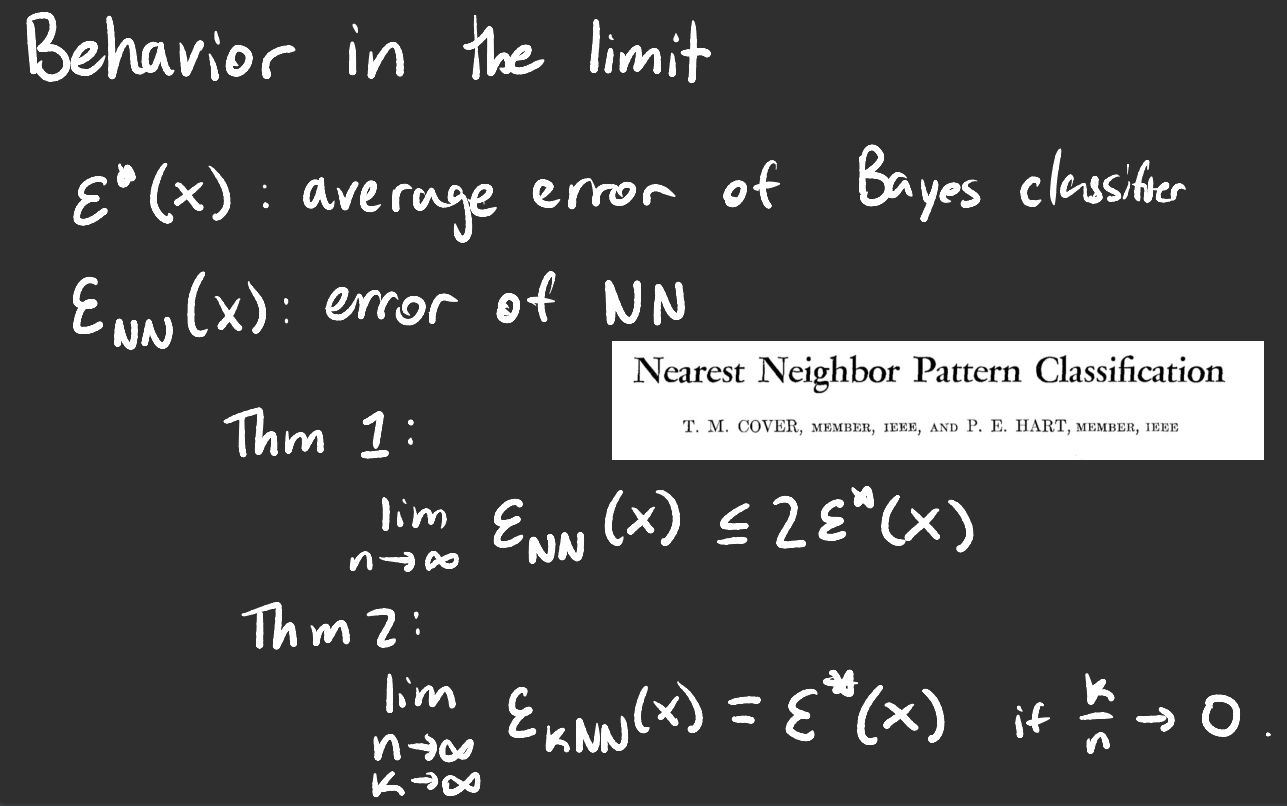 Behavior in the limit
ε*(x) : average error of Bayes classifier
ε_NN(x): error of NN
Nearest Neighbor Pattern Classification
T. M. COVER, MEMBER, IEEE, AND P. E. HART, MEMBER, IEEE
Thm 1:
lim n→∞ ε_NN(x) ≤ 2ε*(x)
Thm 2:
lim n→∞ k→∞ ε_kNN(x) = ε*(x) if k/n → 0.